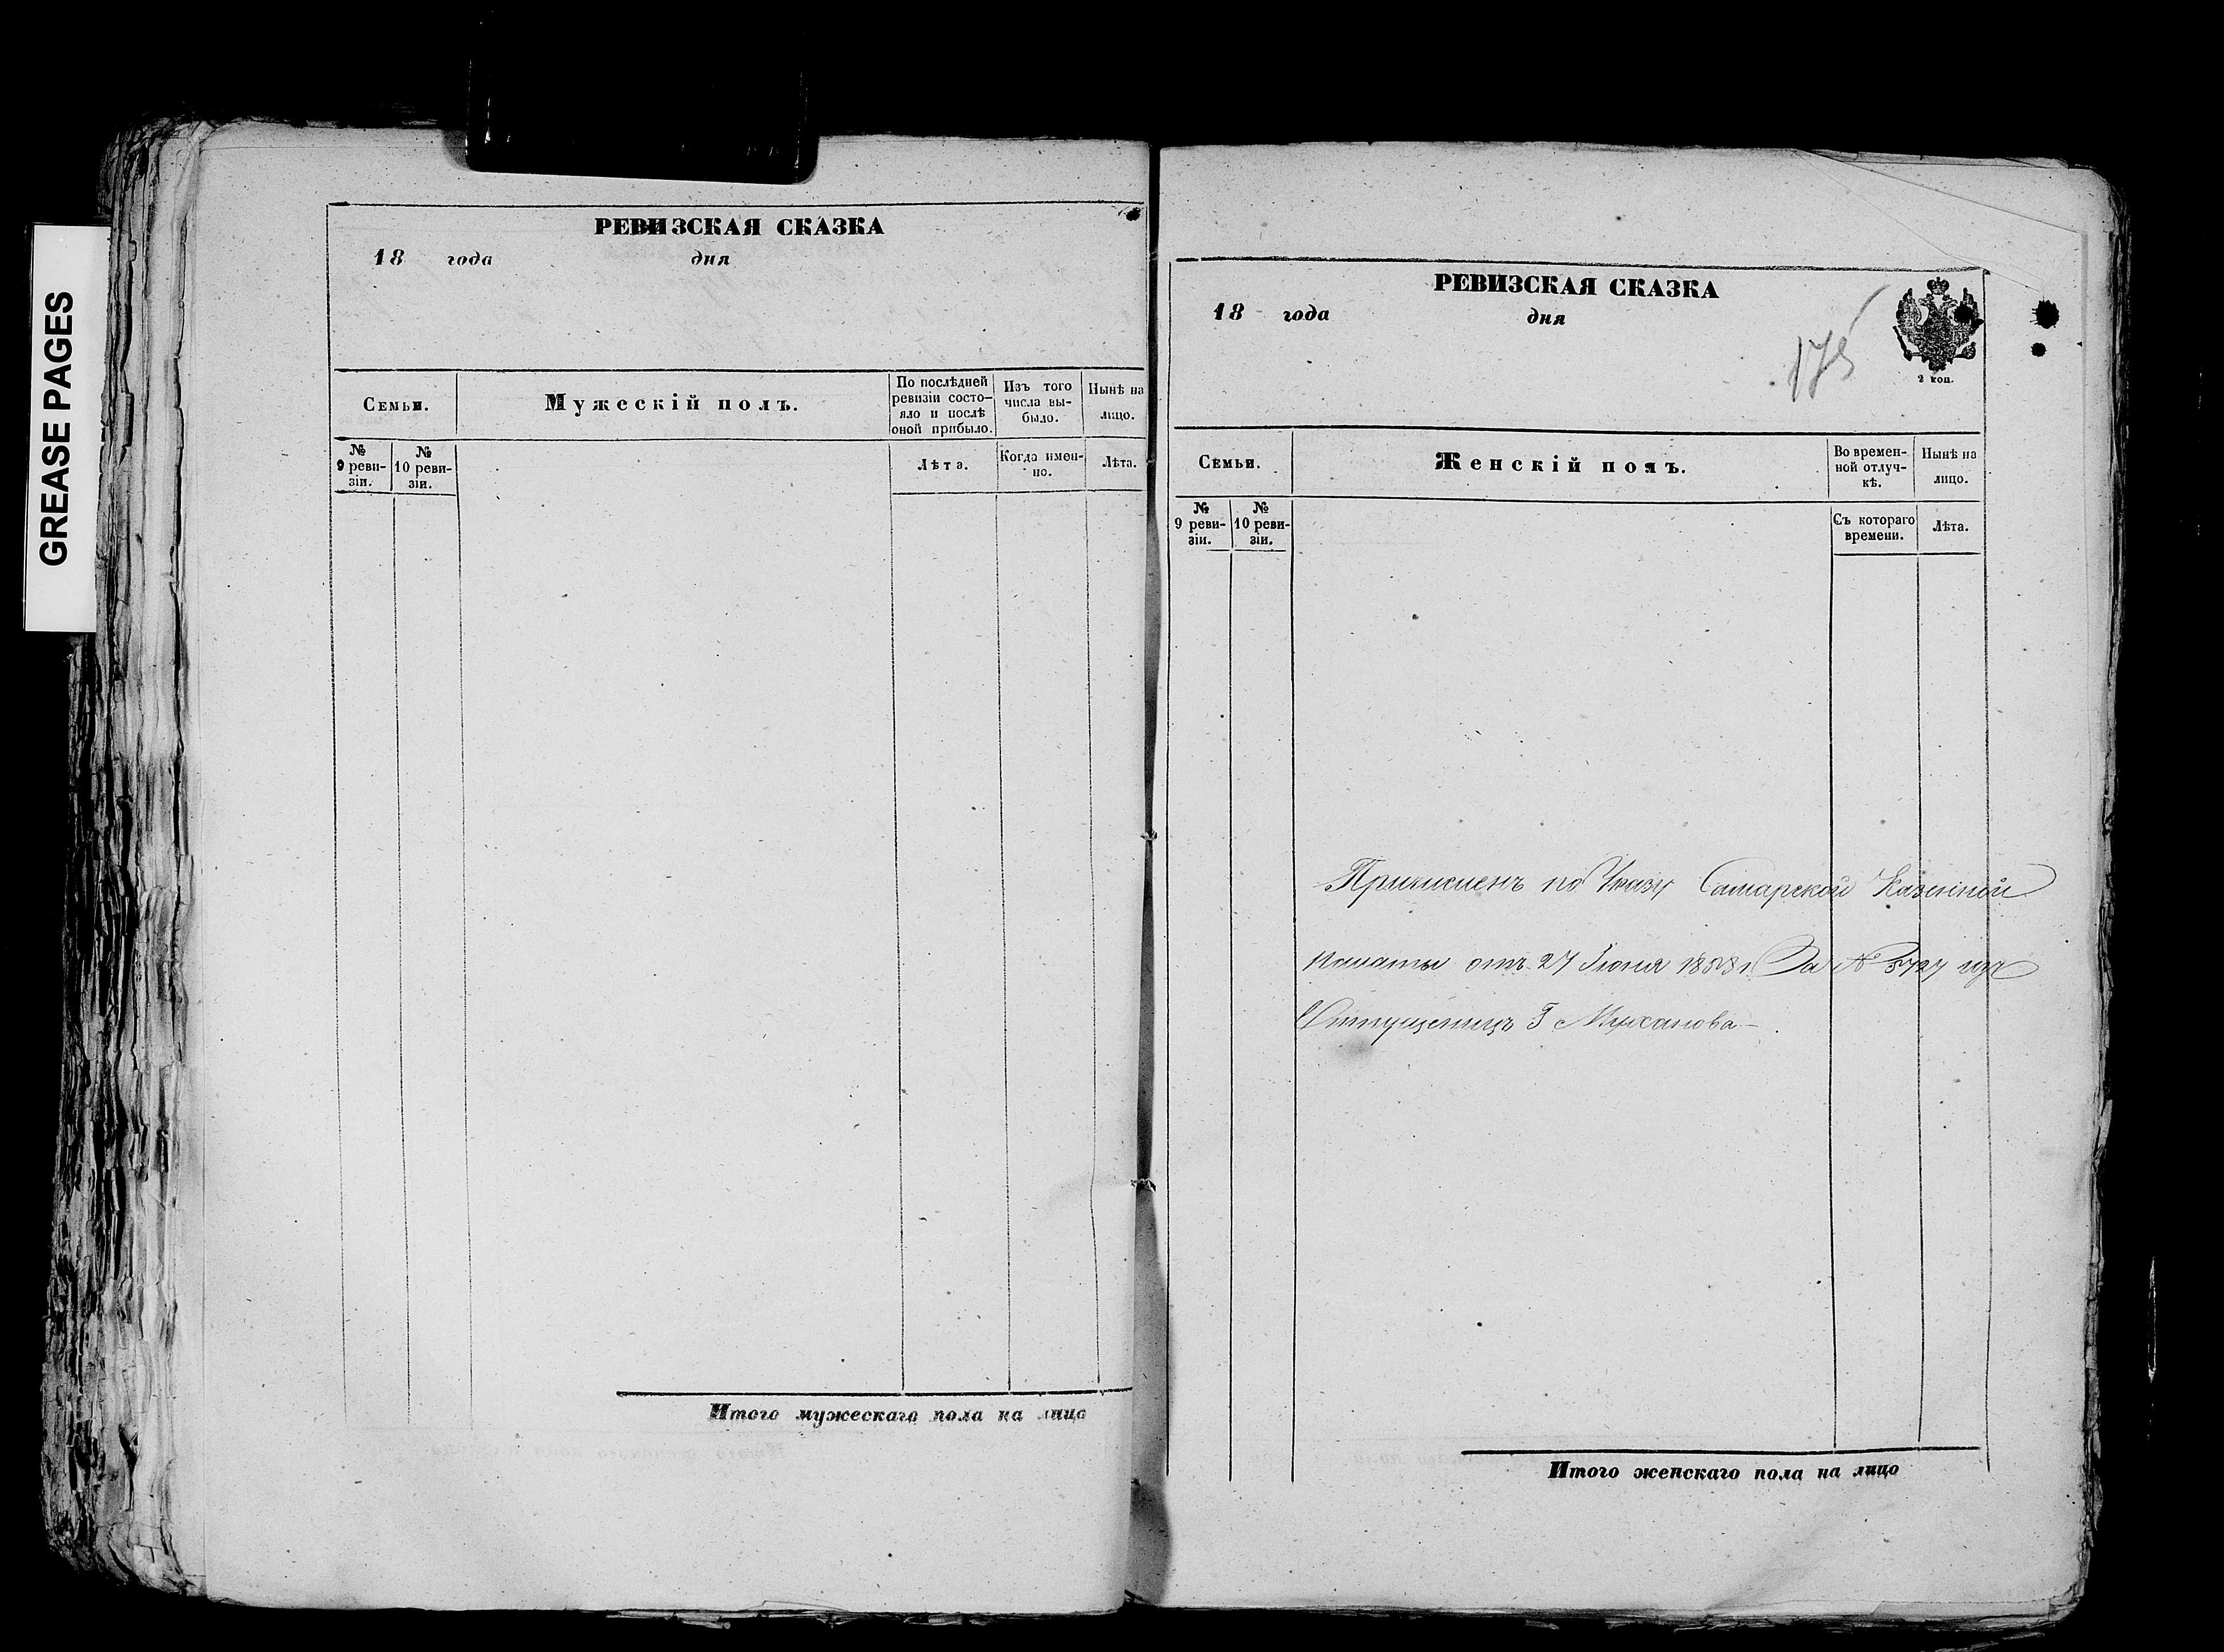 GREASE PAGES
РЕВИЗСКАЯ СКАЗКА
18 года дня
Семьи.
Мужескій полъ.
По послѣдней
ревизіи состо-
яло и послѣ
оной прибыло.
Изъ того
числа вы-
было.
Нынѣ на
лицо.
№
9 реви-
зіи.
№
10 реви-
зіи.
Лѣта.
Когда имен-
но.
Лѣта.
Итого мужескаго пола на лицо
РЕВИЗСКАЯ СКАЗКА
18 года дня
175
2 коп.
Семьи.
Женскій полъ.
Во времен-
ной отлуч-
кѣ.
Нынѣ на
лицо.
№
9 реви-
зіи.
№
10 реви-
зіи.
Съ котораго
времени.
Лѣта.
Причисленъ по Указу Самарской Казенной
палаты отъ 27 Іюня 1858 г. За № 5727 изъ
Отпущенницъ Г Муханова
Итого женскаго пола на лицо